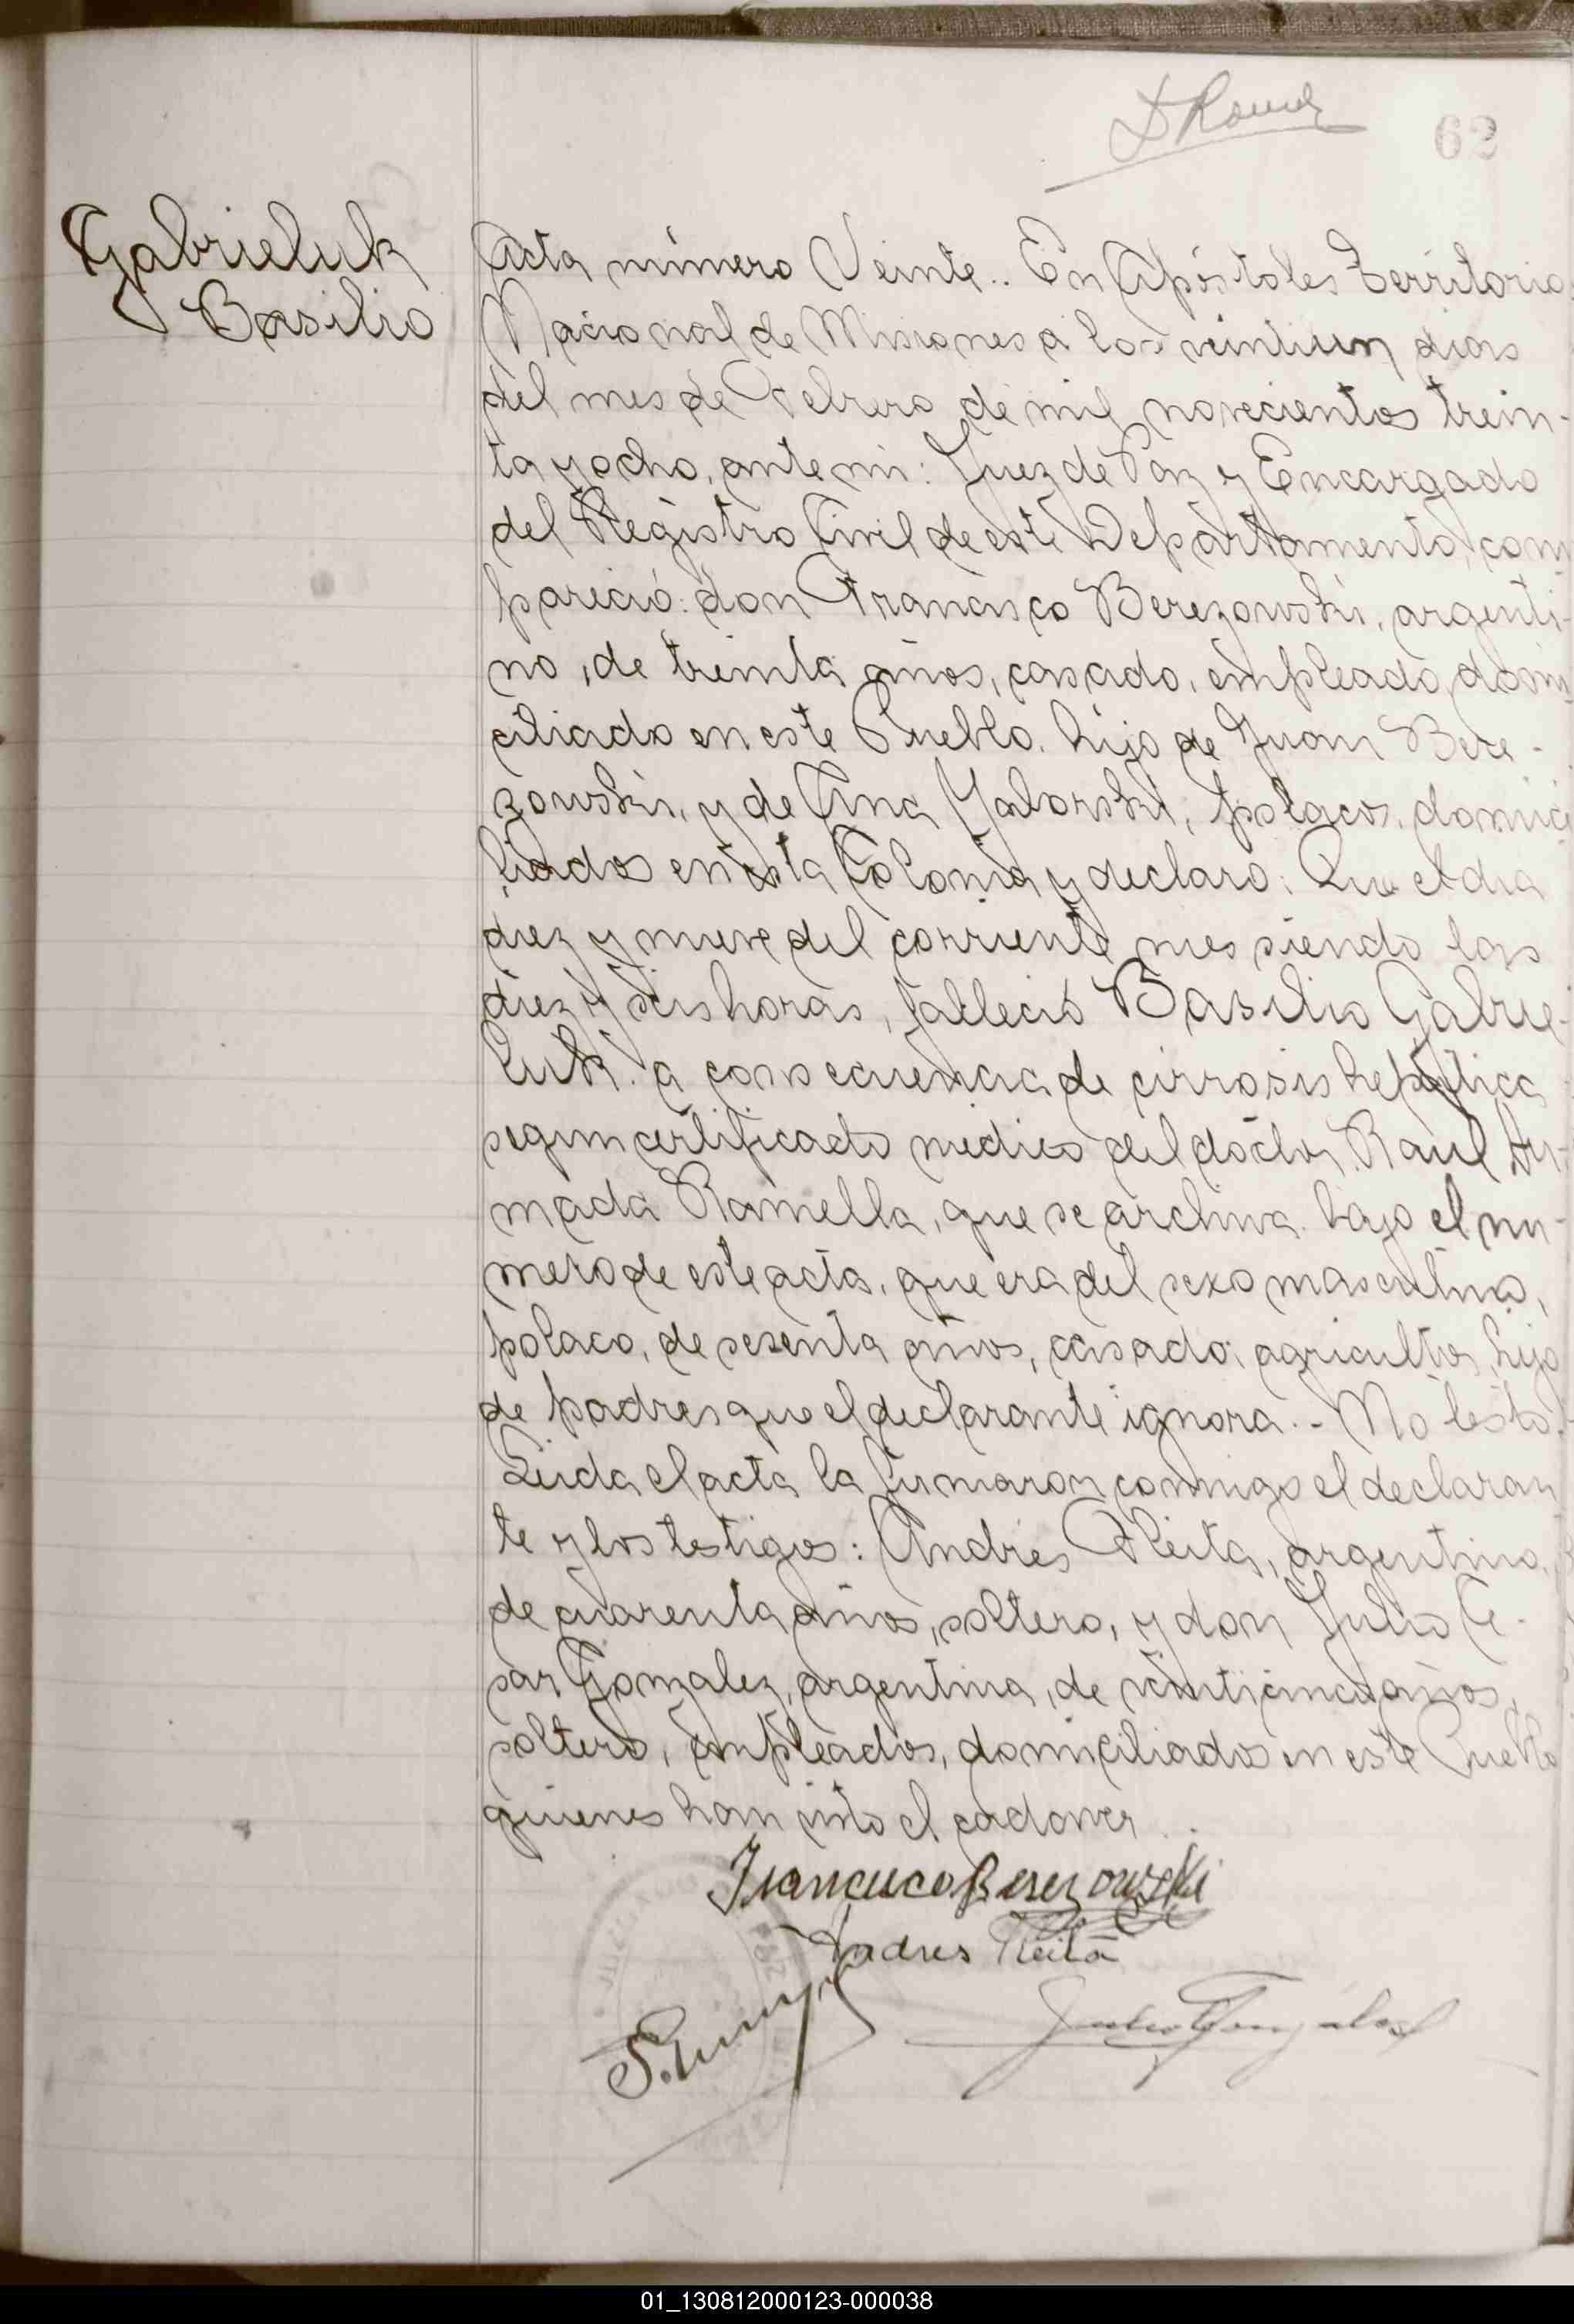 62
Gabrieluk
Basilio
Acta número Veinte.. En Apóstoles Territorio
Nacional de Misiones a los veintiun dias
del mes de Febrero de mil novecientos trein-
ta y ocho, ante mi: Juez de Paz y Encargado
del Registro Civil de este Departamento, com
pareció: don Francisco Berezowski, argenti-
no, de treinta años, casado, empleado, domi
ciliado en este Pueblo. hijo de Juan Bere-
zowski, y de Ana Yaborski, polacos, domici
liados en esta Colonia y declaro: Que el dia
diez y nueve del corriente mes siendo las
diez y seis horas, falleció Basilio Gabrie-
luk. a consecuencia de cirrosis hepática
segun certificado medico del doctor Raul
mada Ramella, que se archiva bajo el nu-
mero de este acta, que era del sexo masculino,
polaco, de sesenta años, casado, agricultor, hijo
de padres que el declarante ignora.. No testó.
Leida el acta la firmaron conmigo el declaran
te y los testigos: Andrés Fleita, argentino,
de cuarenta años, soltero, y don Julio Ce-
sar Gonzalez, argentino, de veinticinco años,
soltero, empleados, domiciliados en este Pueblo
quienes han visto el cadaver..
Francisco Berezowski
Andres Fleita
Julio Gonzalez
01_130812000123-000038